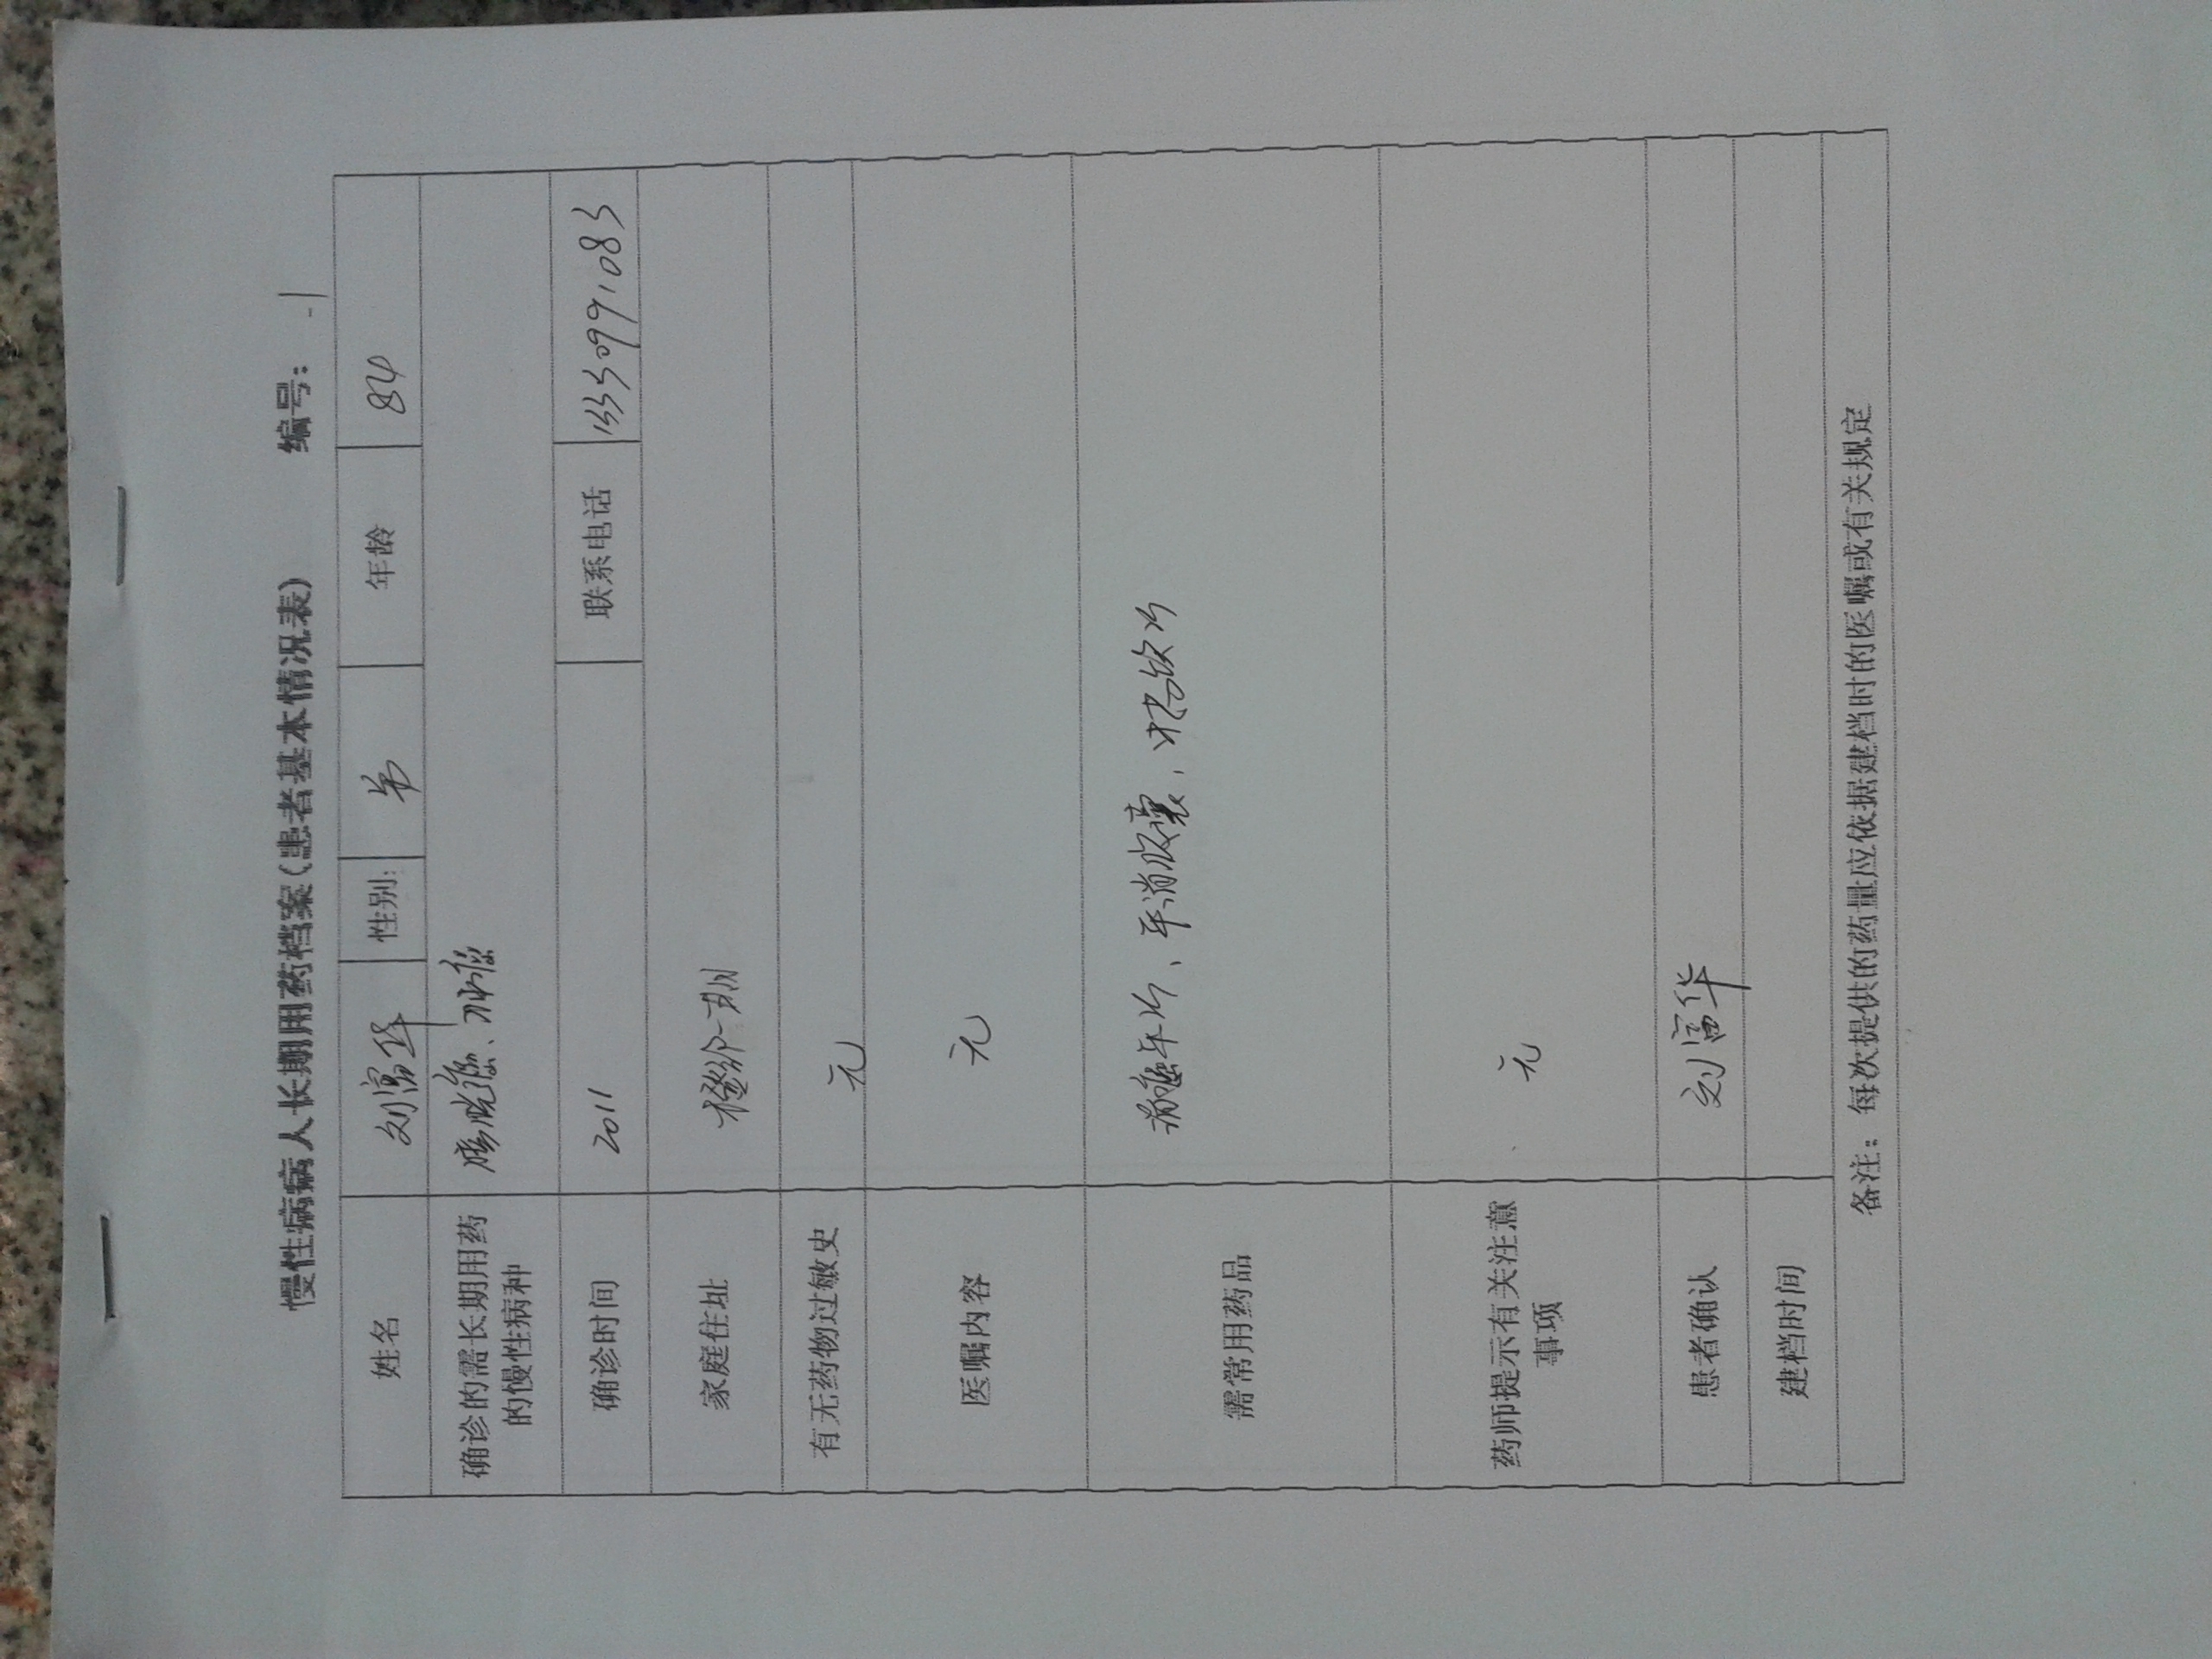 慢性病病人长期用药档案(患者基本情况表) 编号: 1
姓名 刘富华 性别: 男 年龄 84
确诊的需长期用药的慢性病种 癌
确诊时间 2011 联系电话
家庭住址
有无药物过敏史 无
医嘱内容 无
需常用药品 消癌平片、平消胶囊、
药师提示有关注意事项 无
患者确认 刘富华
建档时间
备注: 每次提供的药量应依据建档时的医嘱或有关规定